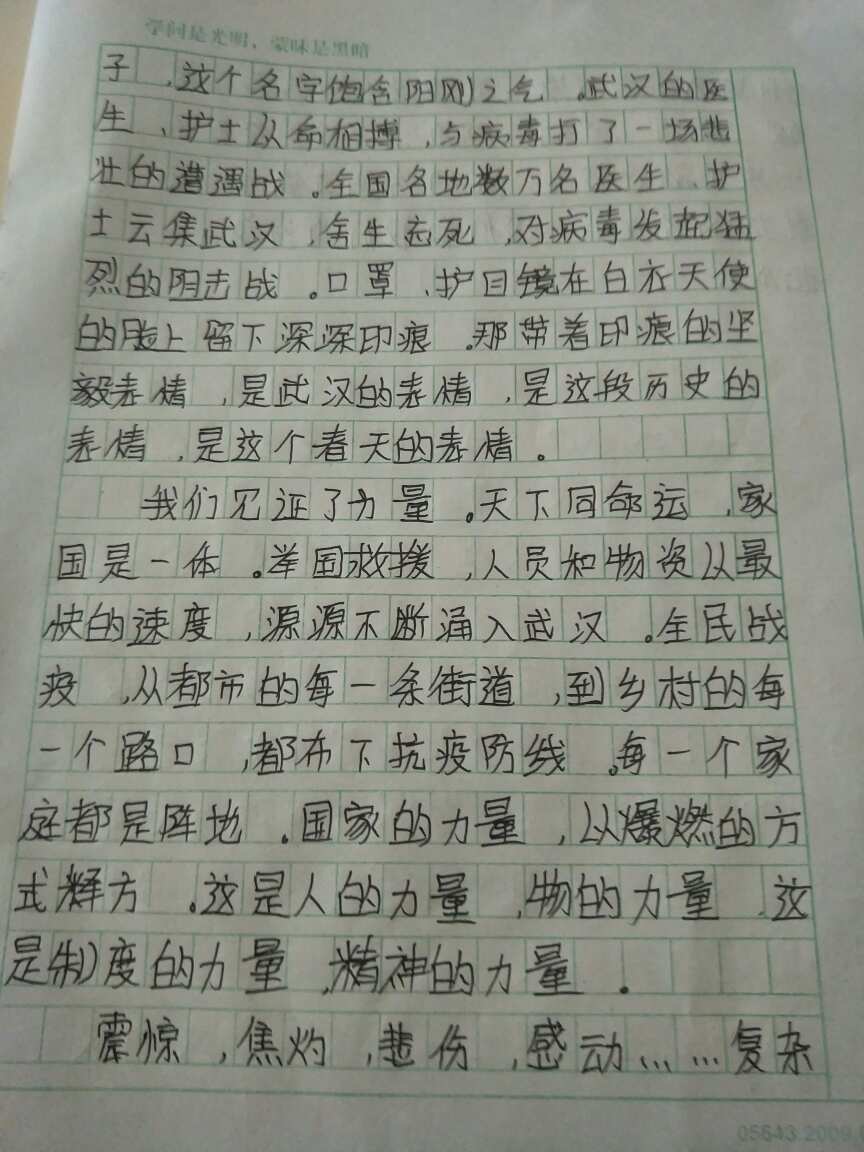 学问是光明，蒙昧是黑暗
子，这个名字饱含阳刚之气。武汉的医
生、护士以命相搏，与病毒打了一场悲
壮的遭遇战。全国各地数万名医生、护
士云集武汉，舍生忘死，对病毒发起猛
烈的阴击战。口罩、护目镜在白衣天使
的脸上留下深深印痕。那带着印痕的坚
毅表情，是武汉的表情，是这段历史的
表情，是这个春天的表情。
我们见证了力量。天下同命运，家
国是一体。举国救援，人员和物资以最
快的速度，源源不断涌入武汉。全民战
疫，从都市的每一条街道，到乡村的每
一个路口，都布下抗疫防线。每一个家
庭都是阵地。国家的力量，以爆燃的方
式释方。这是人的力量，物的力量，这
是制度的力量，精神的力量。
震惊，焦灼，悲伤，感动……复杂
05643.2009.